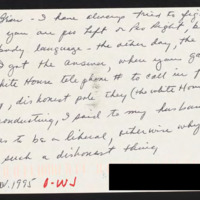 - I have always tried to fig
you are pro left or Pro Right b
body language - the other day, the
I got the answer, when you ga
White House telephone # to call re
, dishonest pole they (the White Hou
conducting, I said to my husban
has to be a liberal, otherwise why
such a dishonest thing
1995 O-WJ